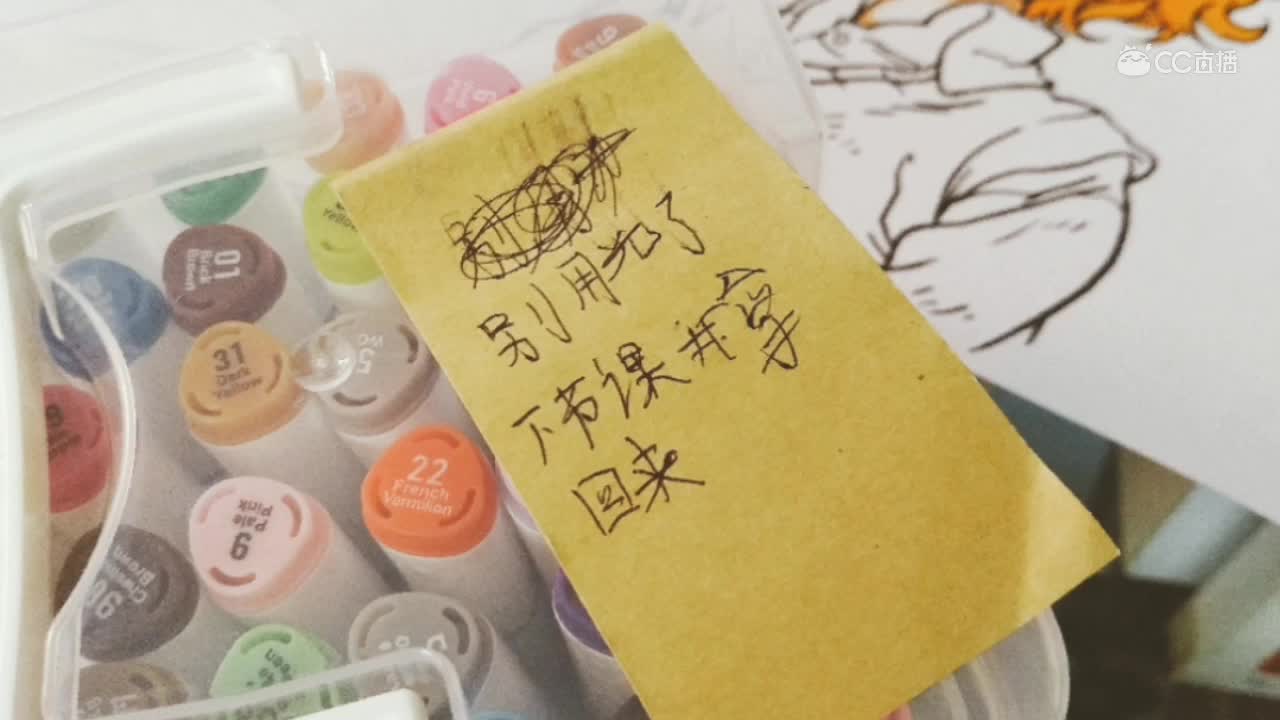 CC直播
别用光了
下节课我拿
回来
01
Brick
Brown
Yellow
31
Dark
Yellow
5
22
French
Vermilion
9
Pale
Pink
90
Brown